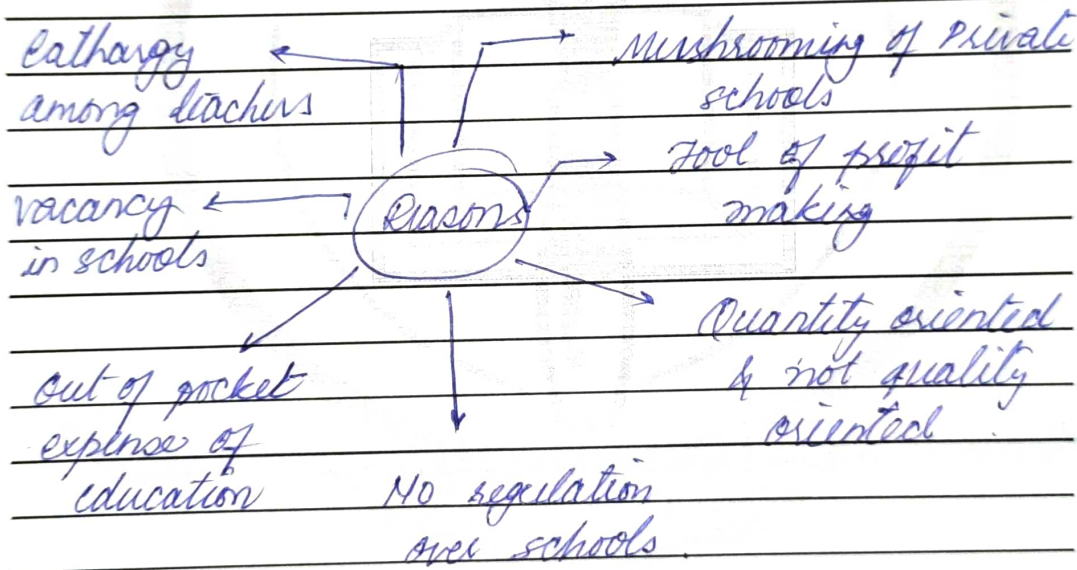 Lathargy
among teachers
Mushrooming of Private
schools
Tool of profit
making
vacancy
in schools
Reasons
Quantity oriented
& not quality
oriented.
out of pocket
expense of
education
No regulation
over schools.